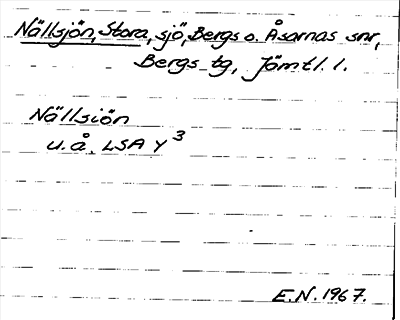 Nällsjön, Stora, sjö, Bergs o. Åsarnas snr,
Bergs tg, Jämtl. l.
Nällsiön
u.å. LSA Y³
E.N. 1967.